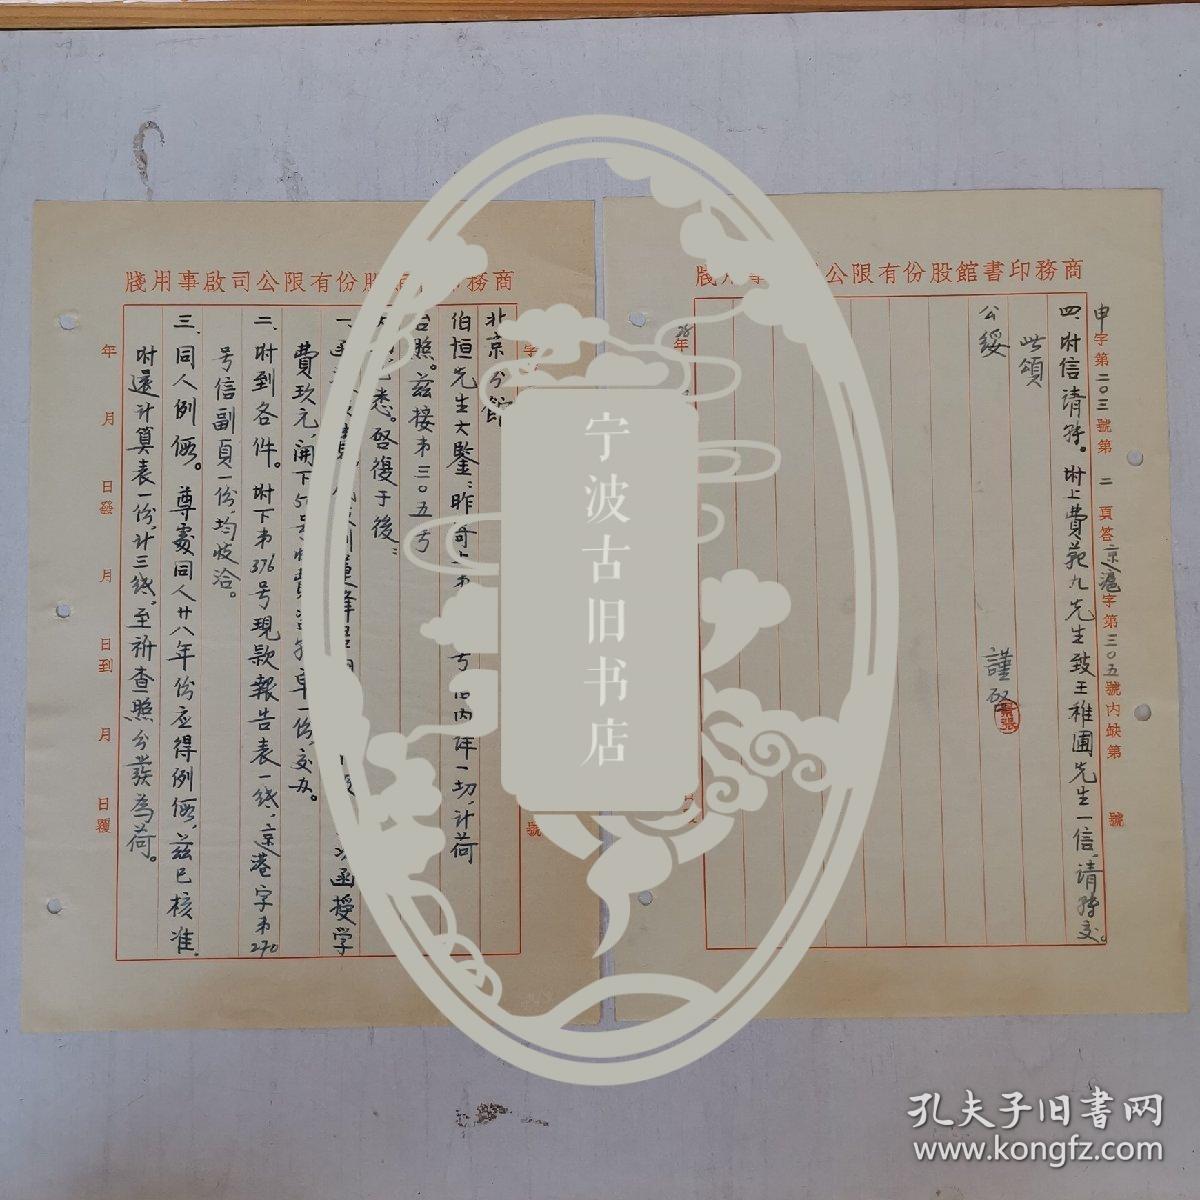 商務印書館股份有限公司啟事用牋
北京分館
伯恒先生大鑒：昨寄
号信內詳一切，計荷
台照。茲接第三〇五号
悉。啓復于後：
一、
函授学
費玖元，開下
一份，交办。
二、附到各件。附下第376号現款報告表一紙，京港字第270
号信副頁一份，均收洽。
三、同人例假。尊處同人廿八年份应得例假，茲已核准，
附還計算表一份，計三紙，至祈查照分發為荷。
年 月 日發 月 日到 月 日覆
商務印書館股份有限公
用牋
申字第二〇三號第二頁答京滬字第三〇五號內缺第 號
四、附信請转。附上費範九先生致王稚圃先生一信，請转交。
此頌
公綏
謹啓
28年
宁波古旧书店
孔夫子旧书网
www.kongfz.com